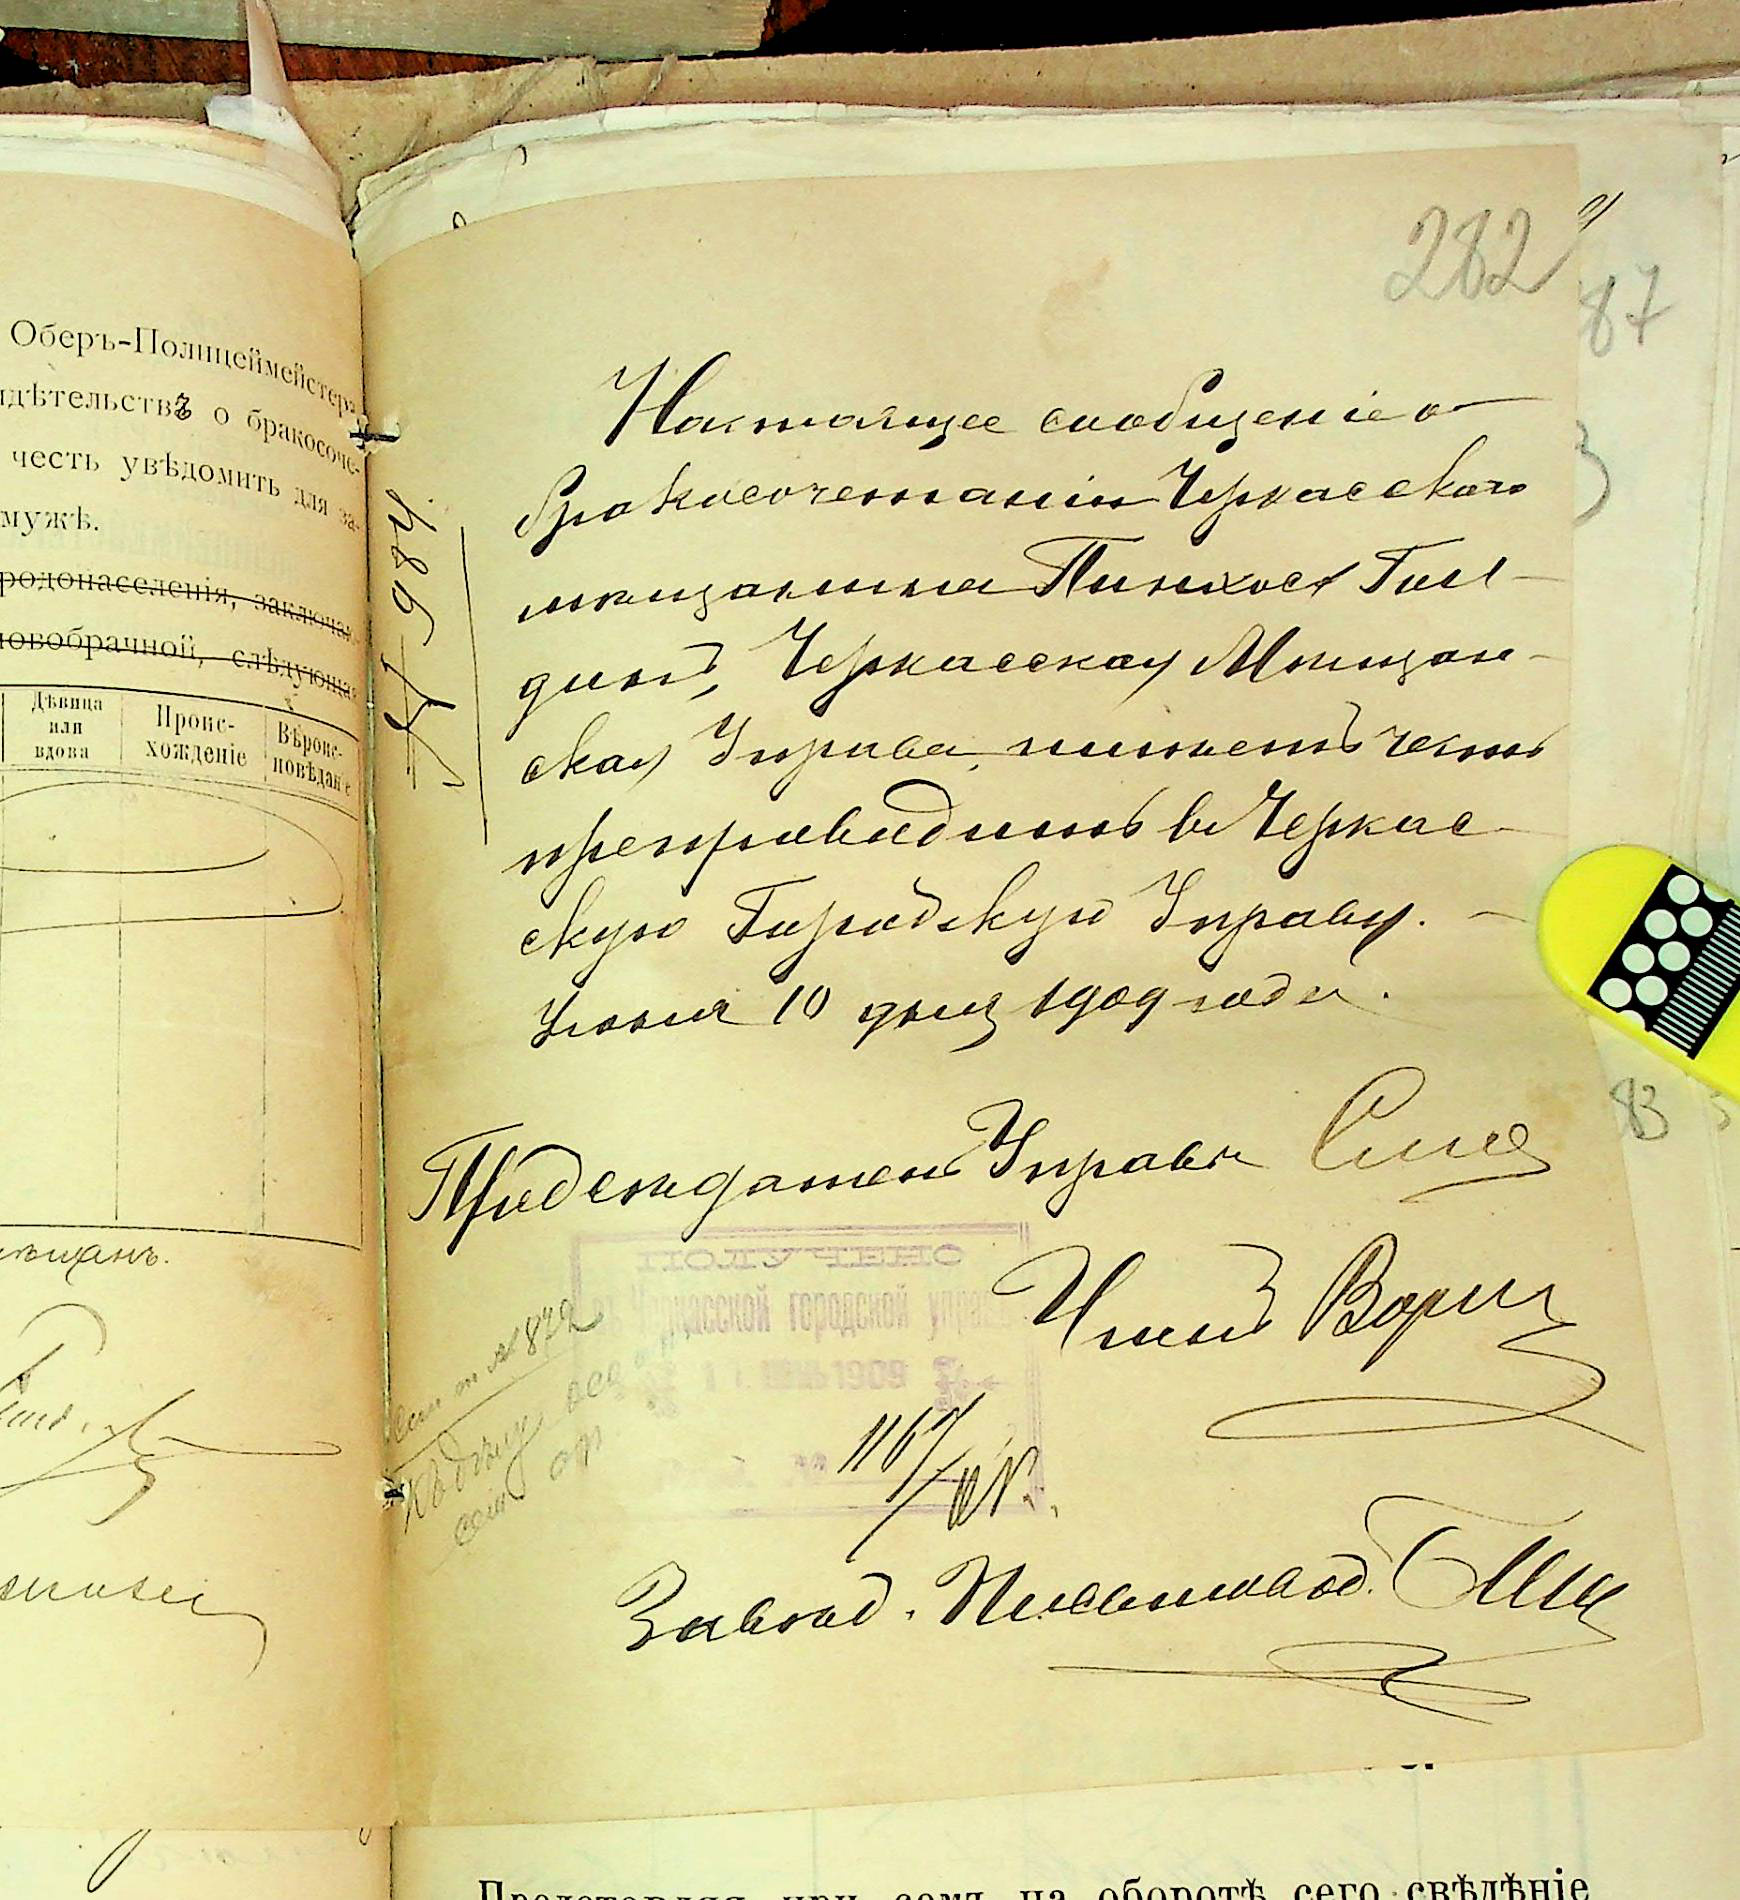 Оберъ-Полицеймейстера
идѣтельствѣ о бракосоче-
честь увѣдомить для за-
мужѣ.
родонаселенія, заключаю
новобрачной, слѣдующая
Дѣвица
или
вдова
Проис-
хожденіе
Вѣроис-
повѣданіе
мѣщанъ.
282
87
№ 984.
Настоящее сообщеніе о
бракосочетаніи Черкасскаго
мѣщанина Пинхоса
Черкасская Мѣщан-
ская Управа, имѣетъ честь
препроводить въ Черкас-
скую Городскую Управу.
Іюня 10 дня 1909 года.
Предсѣдатель Управы
Членъ
ПОЛУЧЕНО
въ Черкасской городской управѣ
1909
1167
Завѣд. Письмовод.
83
Представляя при семъ на оборотѣ сего свѣдѣніе